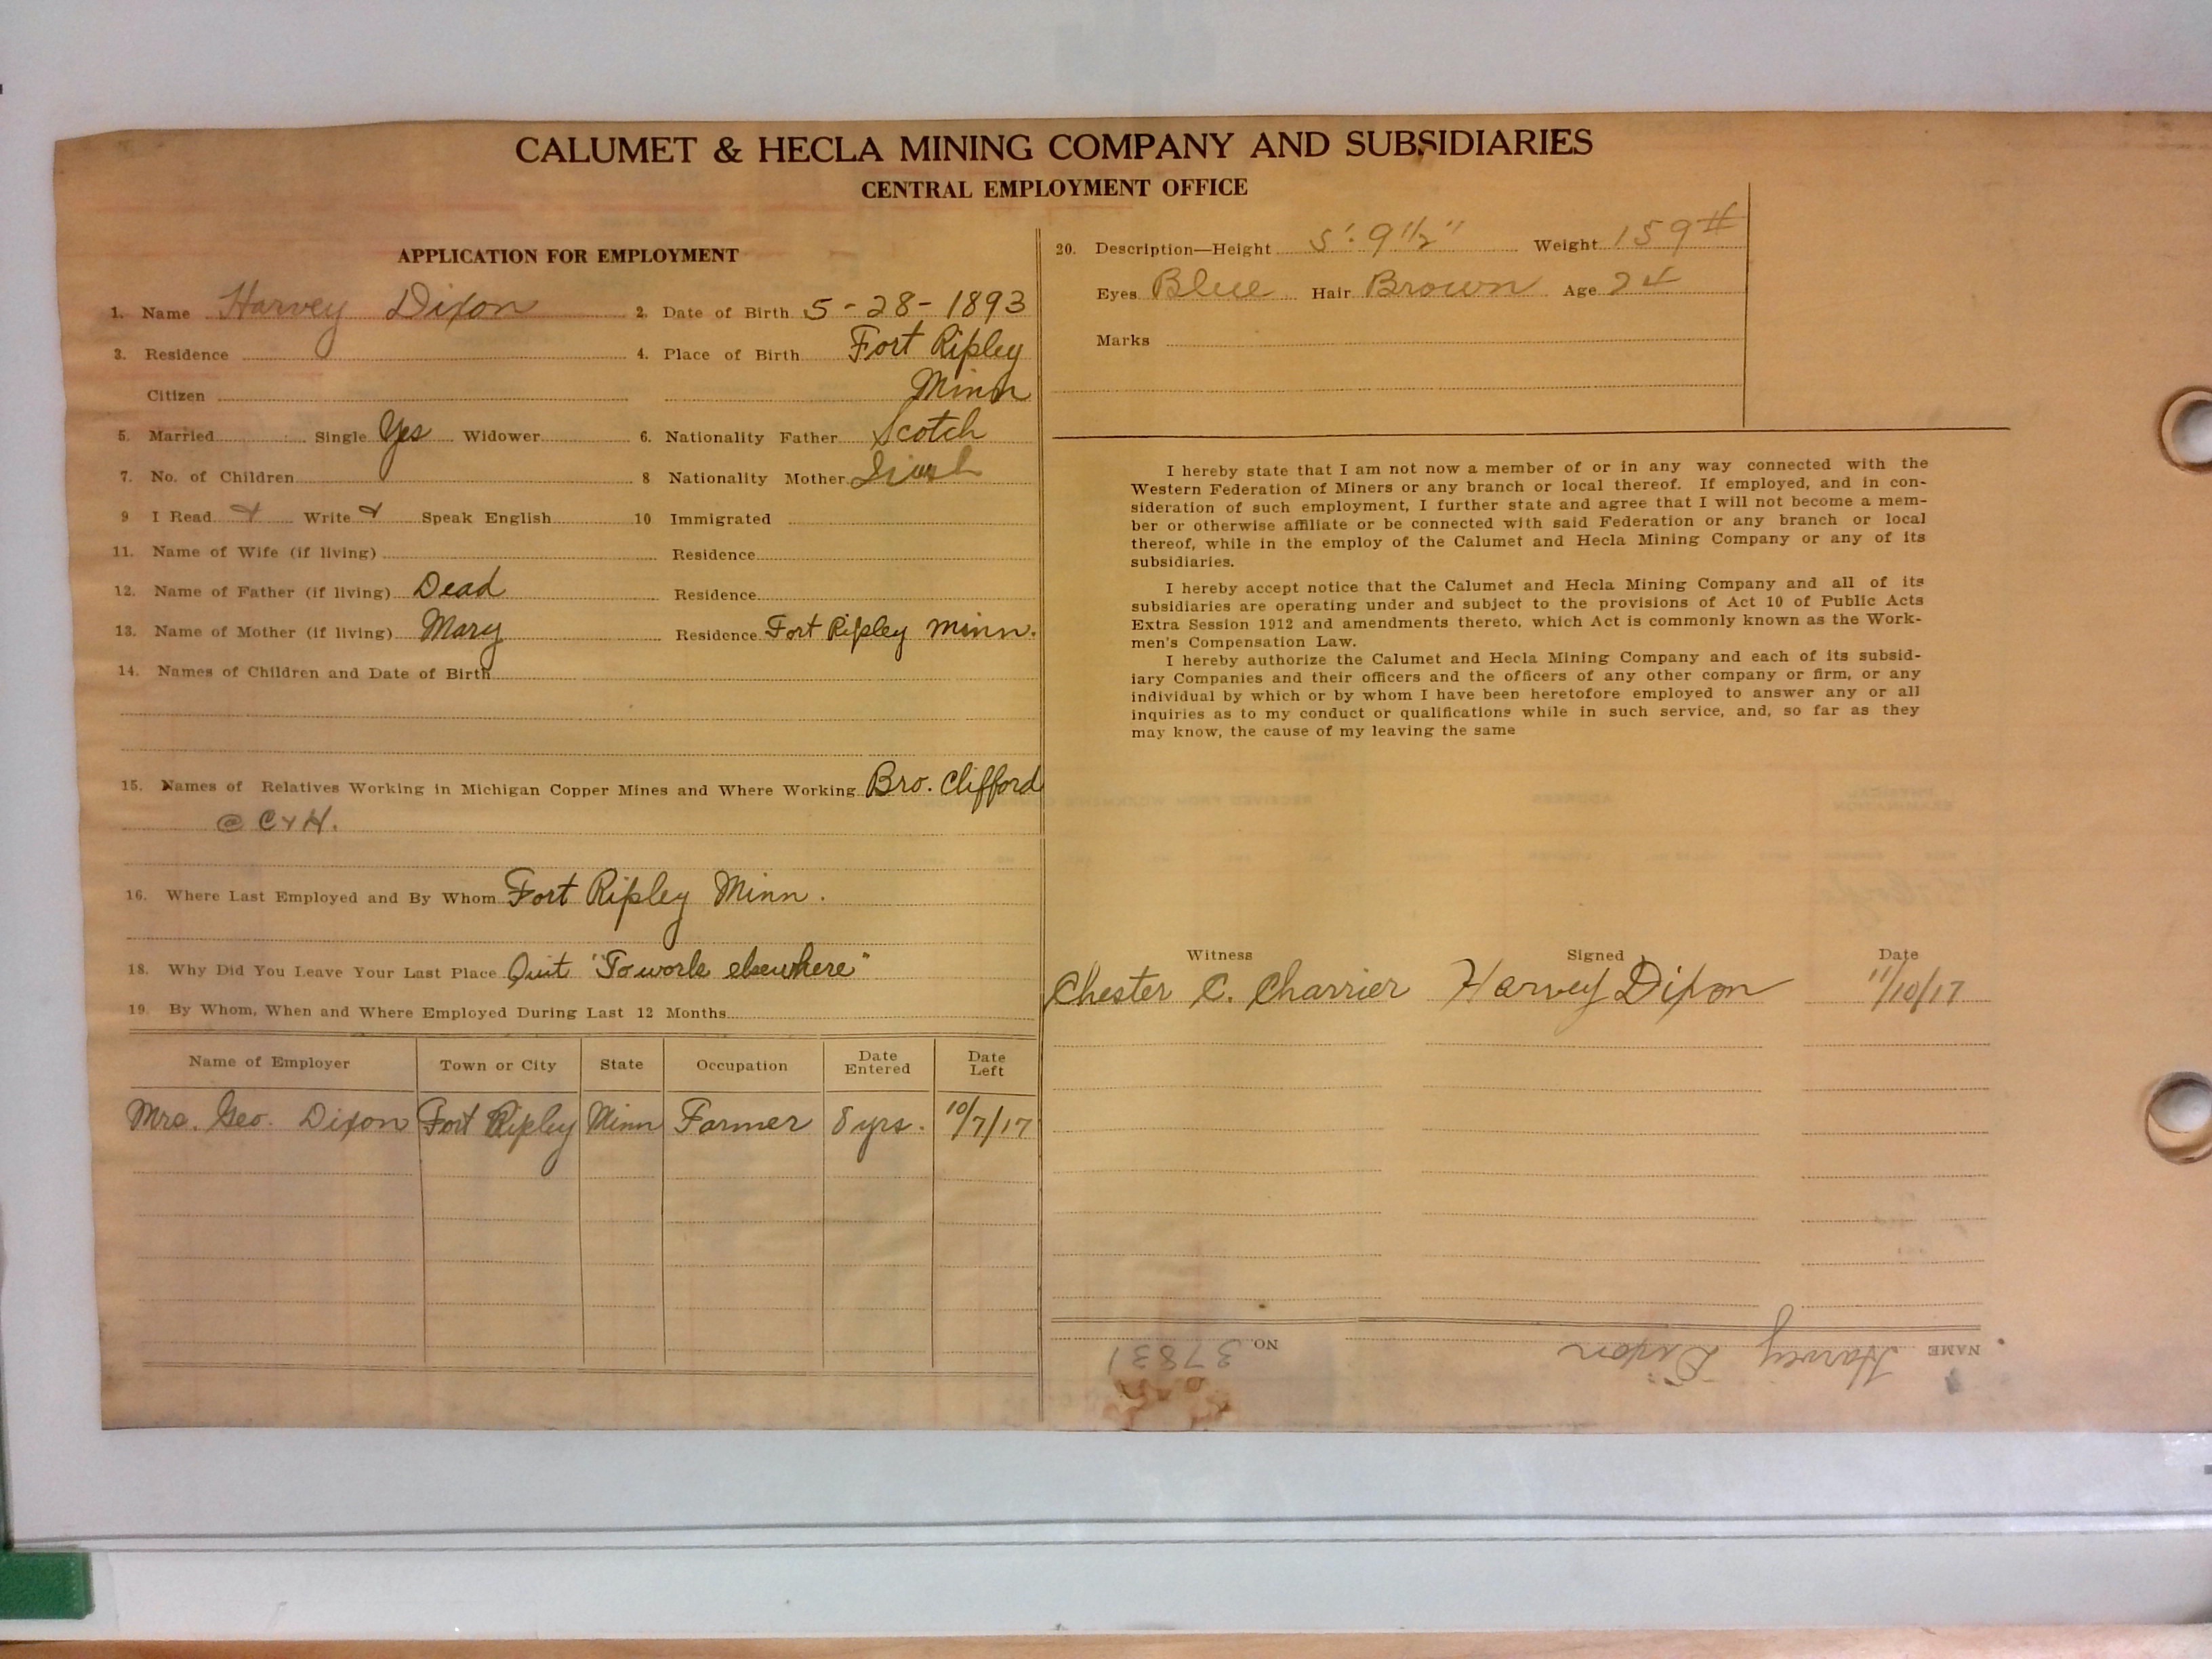 CALUMET & HECLA MINING COMPANY AND SUBSIDIARIES
CENTRAL EMPLOYMENT OFFICE
APPLICATION FOR EMPLOYMENT
1. Name Harvey Dixon 2. Date of Birth 5-28-1893
3. Residence 4. Place of Birth Fort Ripley
Citizen Minn
5. Married Single Yes Widower 6. Nationality Father Scotch
7. No. of Children 8 Nationality Mother Irish
9 I Read Write Speak English 10 Immigrated
11. Name of Wife (if living) Residence
12. Name of Father (if living) Dead Residence
13. Name of Mother (if living) Mary Residence Fort Ripley Minn.
14. Names of Children and Date of Birth
15. Names of Relatives Working in Michigan Copper Mines and Where Working Bro. Clifford
@ C & H.
16. Where Last Employed and By Whom Fort Ripley Minn.
18. Why Did You Leave Your Last Place Quit "To work elsewhere"
19. By Whom, When and Where Employed During Last 12 Months
Name of Employer Town or City State Occupation Date Entered Date Left
Mrs. Geo. Dixon Fort Ripley Minn Farmer 8 yrs. 10/7/17
20. Description—Height 5'. 9 1/2" Weight 159#
Eyes Blue Hair Brown Age 24
Marks
I hereby state that I am not now a member of or in any way connected with the
Western Federation of Miners or any branch or local thereof. If employed, and in con-
sideration of such employment, I further state and agree that I will not become a mem-
ber or otherwise affiliate or be connected with said Federation or any branch or local
thereof, while in the employ of the Calumet and Hecla Mining Company or any of its
subsidiaries.
I hereby accept notice that the Calumet and Hecla Mining Company and all of its
subsidiaries are operating under and subject to the provisions of Act 10 of Public Acts
Extra Session 1912 and amendments thereto, which Act is commonly known as the Work-
men's Compensation Law.
I hereby authorize the Calumet and Hecla Mining Company and each of its subsid-
iary Companies and their officers and the officers of any other company or firm, or any
individual by which or by whom I have been heretofore employed to answer any or all
inquiries as to my conduct or qualifications while in such service, and, so far as they
may know, the cause of my leaving the same
Witness Signed Date
Chester C. Charrier Harvey Dixon 11/10/17
NAME Harvey Dixon NO. 37831